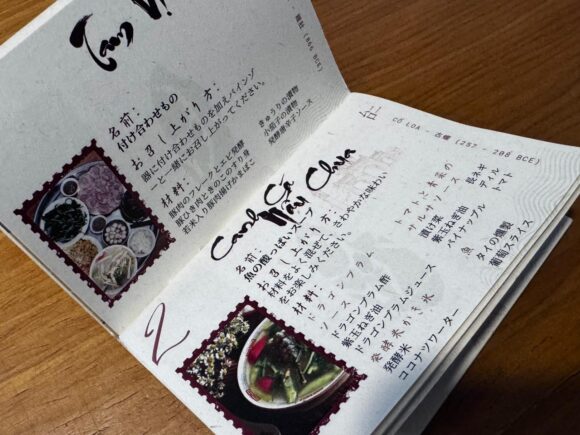 雄王 (865 BCE)
名前：
付け合わせもの
お召し上がり方：
器に付け合わせものを加えバインゾ
ーと一緒にお召し上がってください。
材料：
豚肉のフレークとエビ発酵
豚ひき肉ときのこのすり身
若米入り豚肉揚げかまぼこ
きゅうりの漬物
小茄子の漬物
発酵唐辛子ソース
2
CỔ LOA - 古螺 (257 - 208 BCE)
Canh Cá Nấu Chua
名前：
魚の酸っぱいスープ
お召し上がり方：
材料をよく混ぜて、さわやかな味わい
をお楽しみください。
材料：
ドラゴンプラム
ソース
ドラゴンプラム酢
紫玉ねぎ油
ドラゴンプラムジュース
発酵米かき氷
発酵米
ココナツワーター
トマトと香菜の
サルサソース
漬け菜
紫玉ねぎ油
パイナップル
長ネギ
ディル
トマト
魚
タイの燻製
葡萄スライス